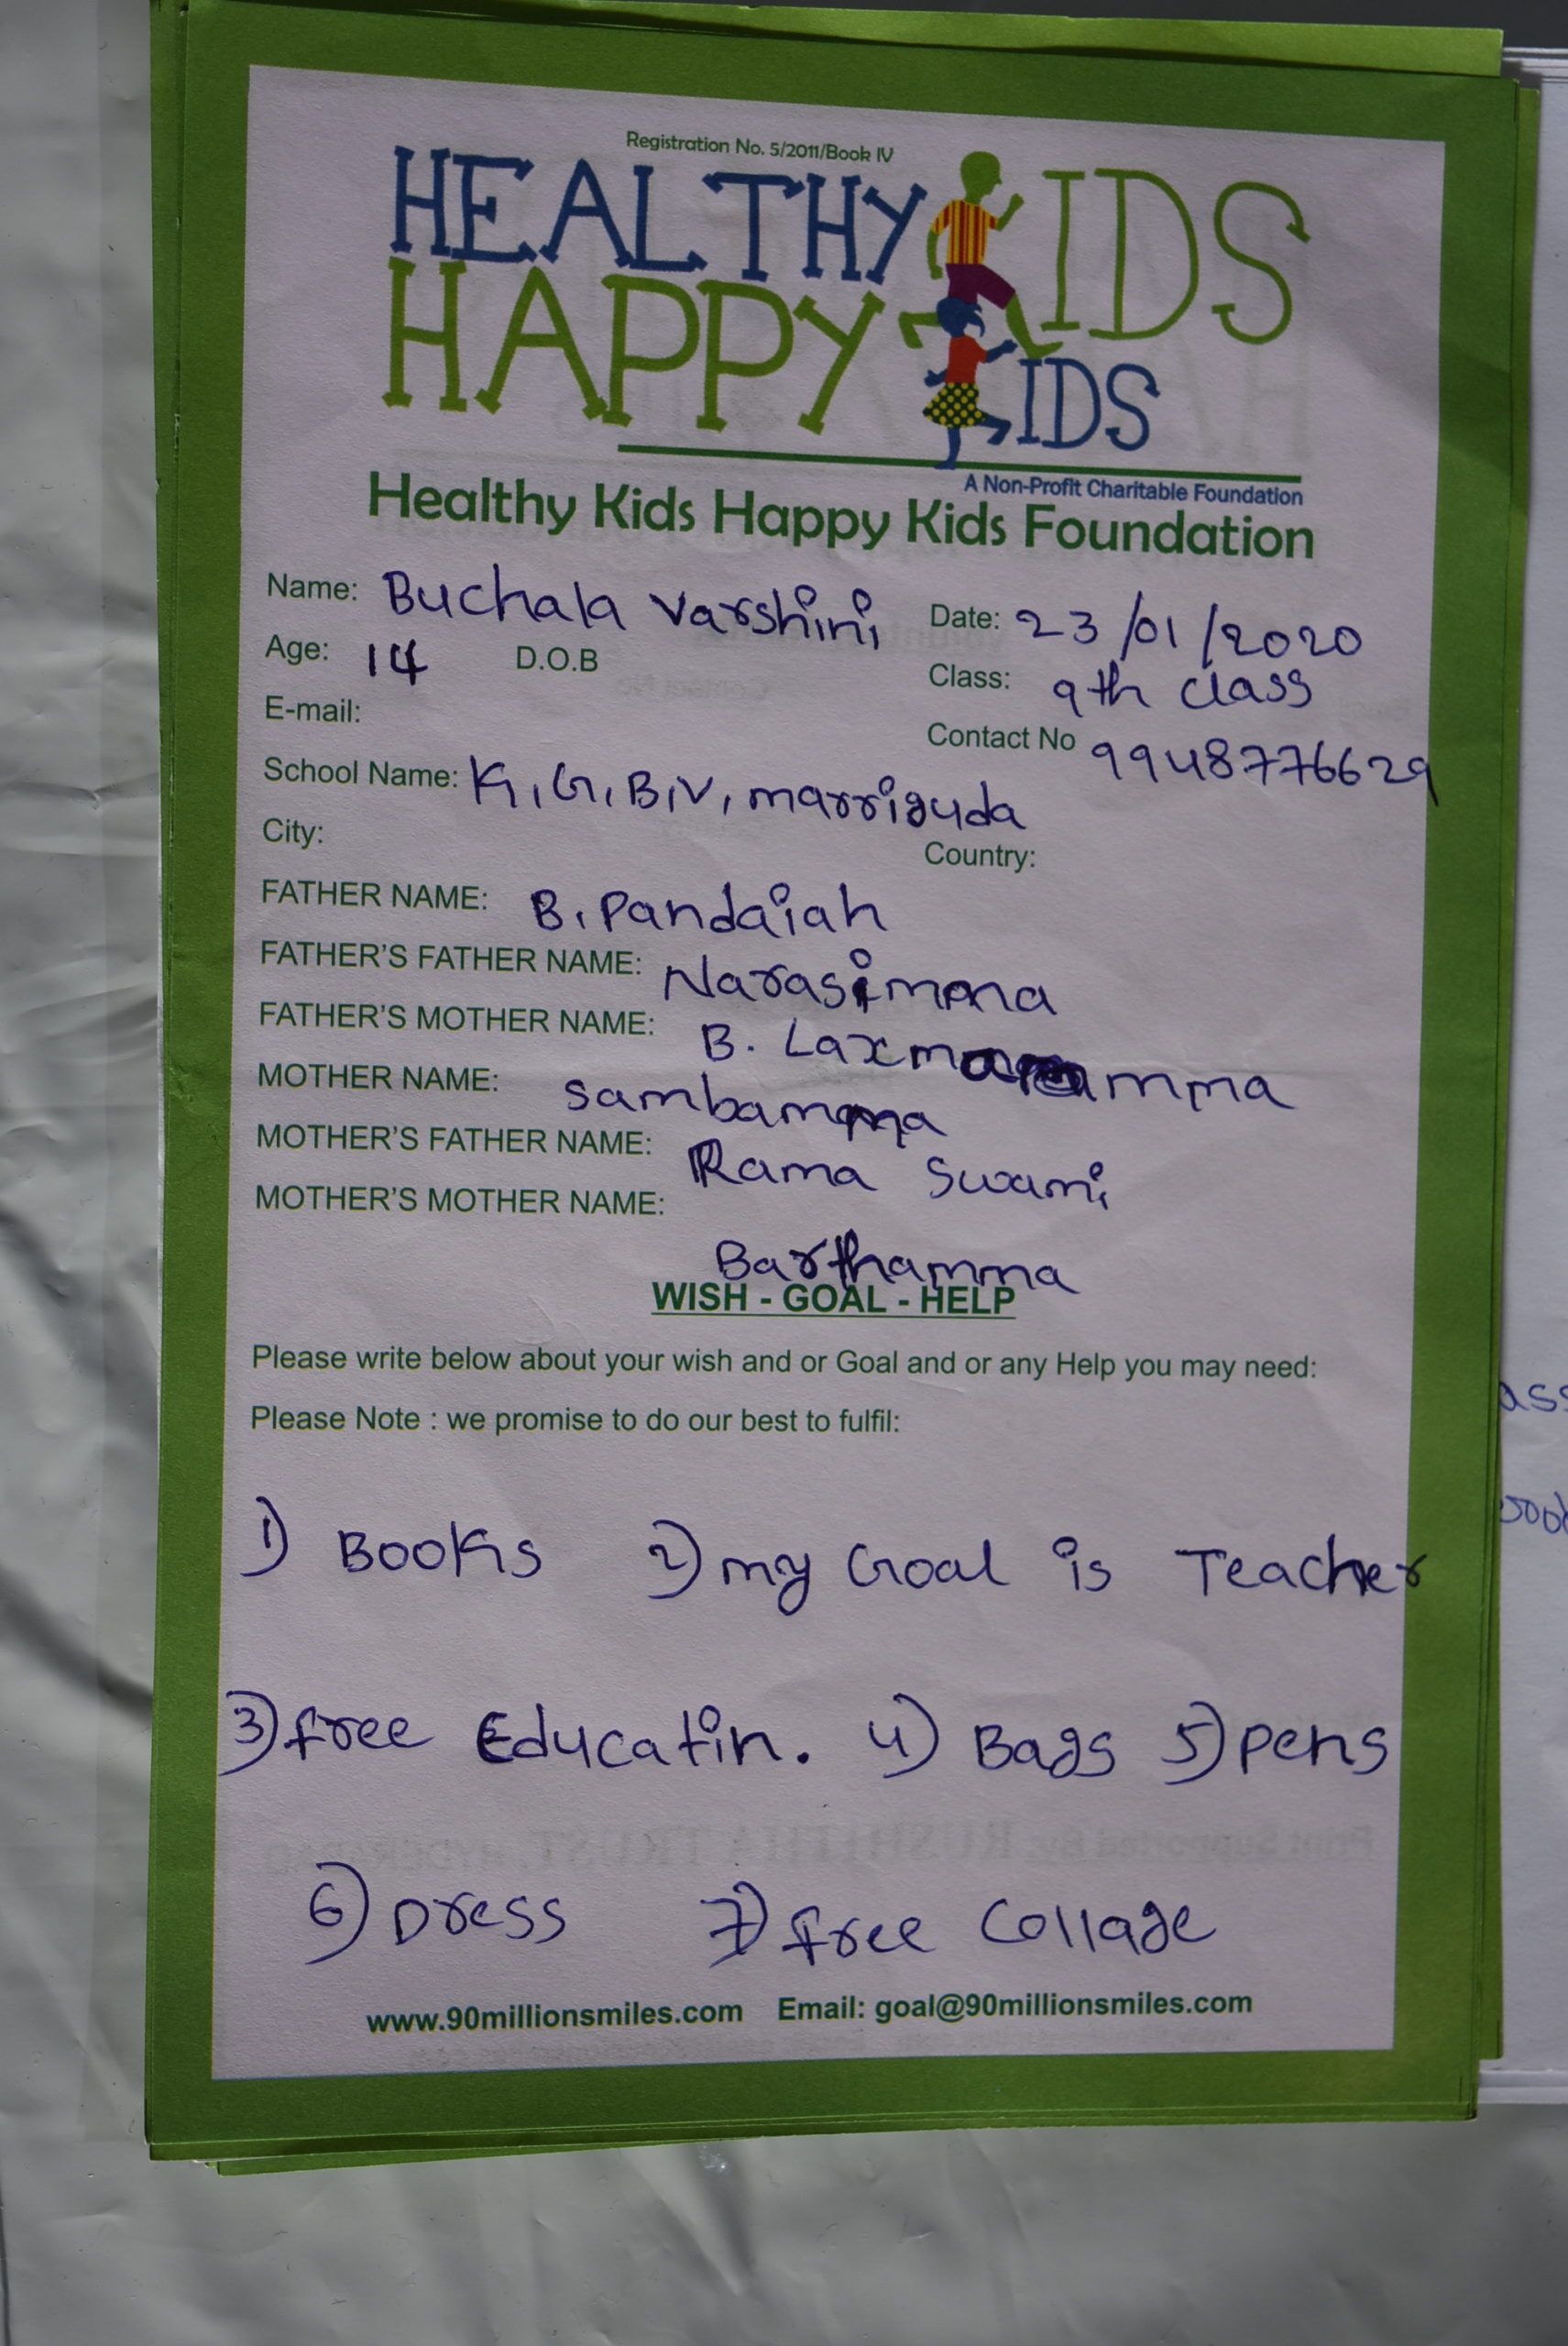 Registration No. 5/2011/Book IV
HEALTHY KIDS
HAPPY KIDS
A Non-Profit Charitable Foundation
Healthy Kids Happy Kids Foundation
Name: Buchala Varshini Date: 23/01/2020
Age: 14 D.O.B Class: 9th class
E-mail: Contact No 9948776629
School Name: K.G.B.V, marriguda
City: Country:
FATHER NAME: B. Pandaiah
FATHER'S FATHER NAME: Narasimma
FATHER'S MOTHER NAME: B.
MOTHER NAME: Sambamma
MOTHER'S FATHER NAME: Rama Swami
MOTHER'S MOTHER NAME:
Barthamma
WISH - GOAL - HELP
Please write below about your wish and or Goal and or any Help you may need:
Please Note : we promise to do our best to fulfil:
1) Books 2) my Goal is Teacher
3) free Educatin. 4) Bags 5) pens
6) Dress 7) free Collage
www.90millionsmiles.com Email: goal@90millionsmiles.com